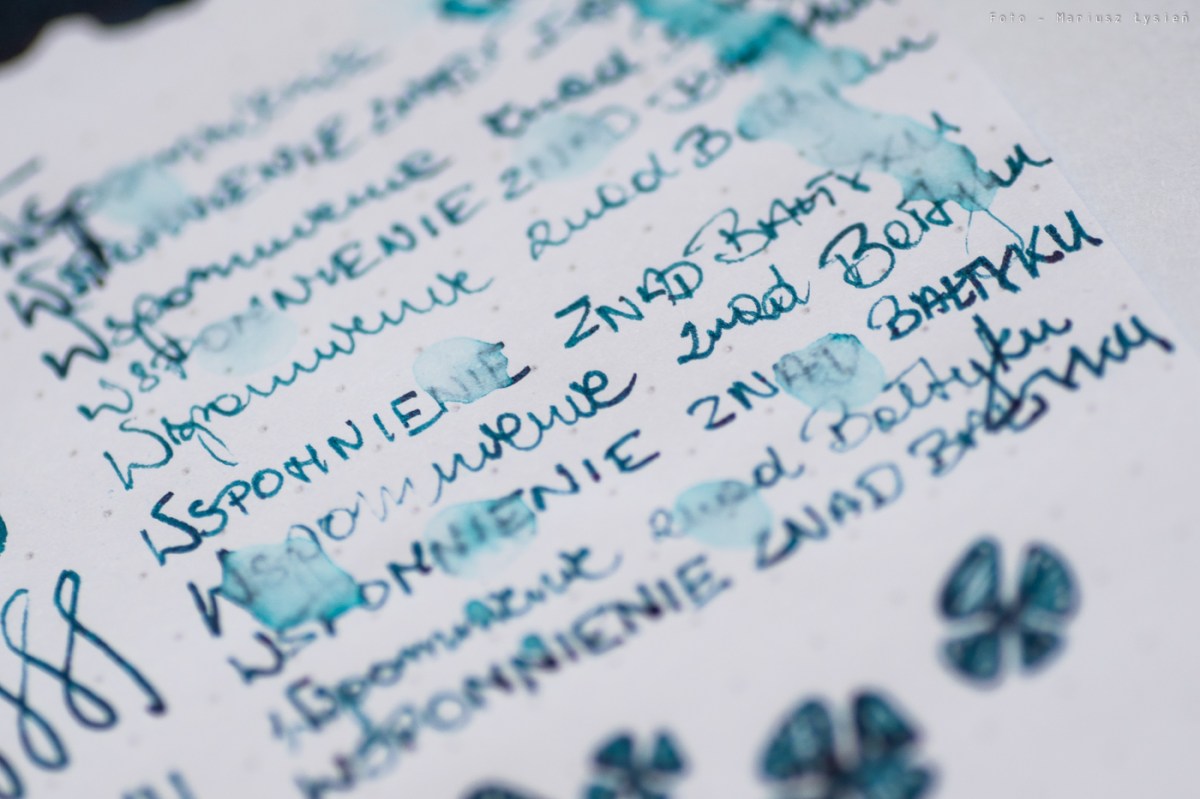 Foto - Mariusz Łysień
WSPOMNIENIE ZNAD
Wspomnienie znad
WSPOMNIENIE ZNAD
Wspomnienie znad
WSPOMNIENIE ZNAD BAŁTYKU
Wspomnienie znad Bałtyku
WSPOMNIENIE ZNAD BAŁTYKU
Wspomnienie znad Bałtyku
WSPOMNIENIE ZNAD BAŁTYKU